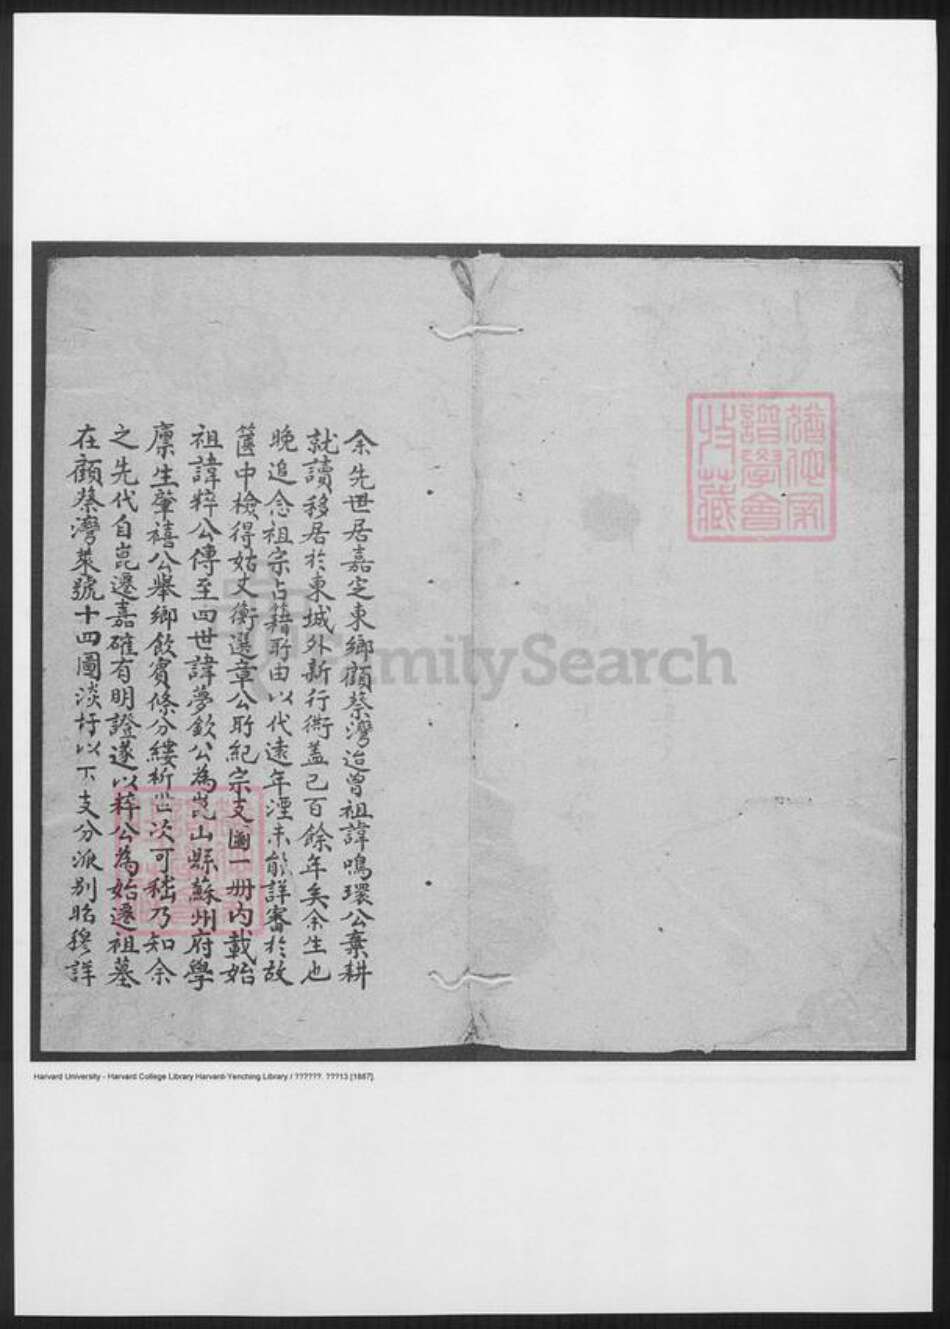 余先世居嘉定東鄉顧蔡灣迨曾祖諱鳴環公棄耕
就讀移居於東城外新行衖蓋已百餘年矣余生也
晚追念祖宗占籍所由以代遠年湮未能詳審於故
篋中檢得姑丈衡選章公所紀宗支圖一冊內載始
祖諱粹公傳至四世諱夢欽公為崑山縣蘇州府學
廩生肇禧公舉鄉飲賓條分縷析世次可稽乃知余
之先代自崑遷嘉確有明證遂以粹公為始遷祖墓
在顧蔡灣萊號十四圖淡圩以下支分派別昭穆詳
譜學會
收藏
FamilySearch
Harvard University - Harvard College Library Harvard-Yenching Library / ??????. ???13 [1887].